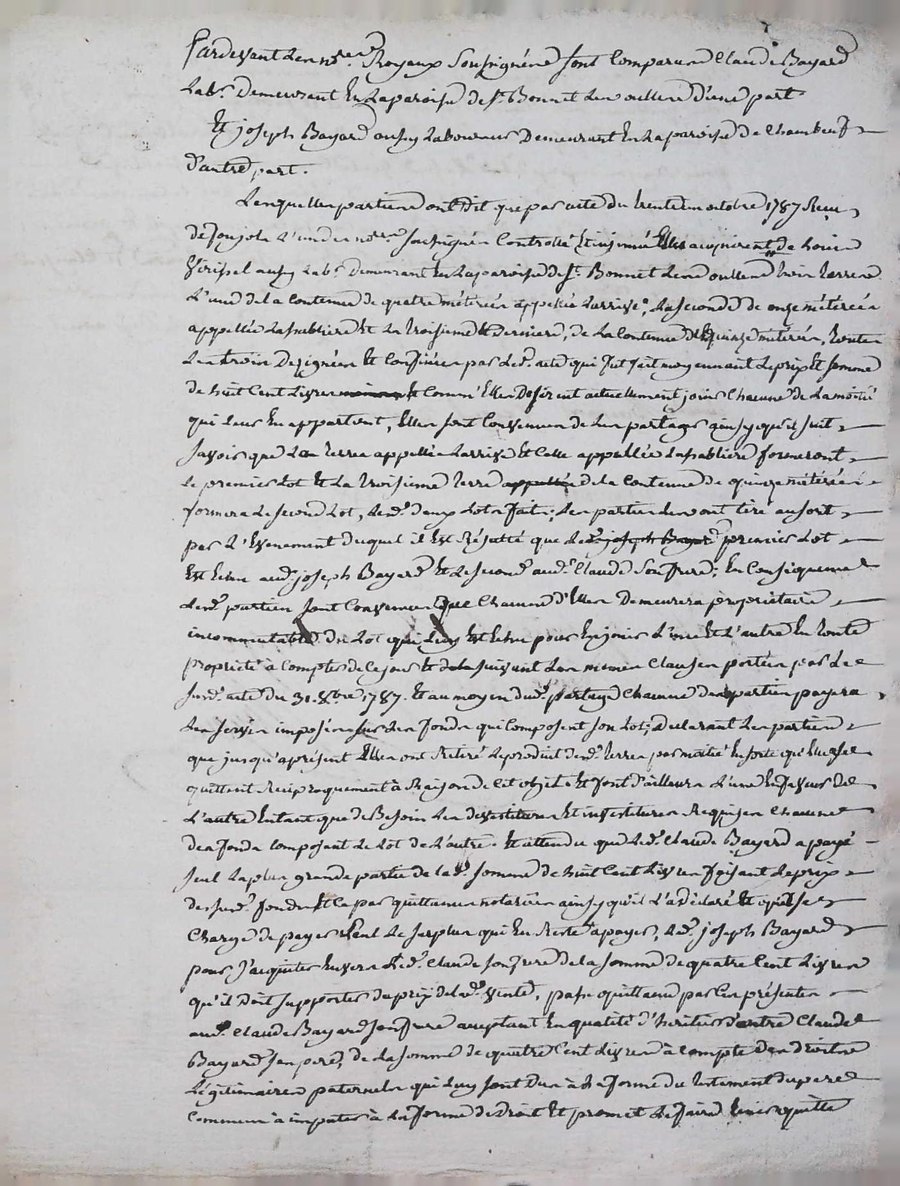 Pardevant Les n.res Royaux Soussignés sont Comparus Claude Bayard
Lab.r Demeurant En La paroisse de S.t Bonnet Les oulles d'une part
Et joseph Bayard aussy Laboureur Demeurant En La paroisse de Chambeuf
d'autre part.
Lesquelles parties ont Dit que par acte du trente un octobre 1787 Reçu
de L'un des n.res soussignés Controllé Et insinué Elles acquirent de
aussy Lab.r Demeurant En La paroisse de S.t Bonnet Les oulles trois terres
L'une de la Contenue de quatre métérées appellée Larrise, La seconde de onze métérées
appellée La sabliere Et La troisieme Et Derniere, de La Contenue de quinze métérées, toutes
Les trois Dezignées Et Confinées par Led. acte qui fut fait moyennant Le prix Et somme
de huit Cent Livres Et Comm'Elles Desirent actuellement jouir Chacune de La moitié
qui Leur En appartient, Elles sont Convenues de Les partager ainsy qu'il suit
Savoir que La terre appellée Larrise Et Celle appellée La sabliere formeront
Le premier Lot Et La troisieme terre de La Contenue de quinze métérées
formera Le second Lot, Lesd. deux Lots faits; Les parties Les ont tiré au sort
par L'Evenement duquel il Est Résulté que Le premier Lot
Est Echu aud. joseph Bayard Et Le second aud. Claude Son frere; En Conséquence
Lesd. parties sont Convenues que Chacune d'Elles Demeurera propriétaire
incommutable du Lot qui Luy Est Echu pour En jouir L'une Et L'autre En toute
propriété à Compter de Ce jour Et suivant Les memes Clauses portées par Le
susd. acte du 31. 8.bre 1787. Et au moyen dud. partage Chacune des parties payera
Les servis imposés sur Les fonds qui Composent son Lot; Declarant Les parties
que jusqu'àprésent Elles ont Retiré Le produit desd. terres par moitié En sorte qu'Elles se
quittent Reciproquement à Raison de Cet objet. Et font d'ailleurs L'une En faveur de
L'autre Entant que de Besoin Les devestitures Et investitures Requises Chacune
des fonds Composant Le Lot de L'autre. Et attendu que Led. Claude Bayard a payé
seul La plus grande partie de lad. somme de huit Cent Livres faisant Le prix
desusd. fonds Et Ce par quittances notariées ainsy qu'il L'a déclaré Et qu'il se
Charge de payer seul Le surplus qui En Reste à payer, Led. joseph Bayard
pour s'acquiter Envers Led. Claude son frere de La somme de quatre Cent Livres
qu'il Doit supporter du prix de Lad. vente, passe quittance par Ces présentes
aud. Claude Bayard son frere acceptant En qualité d'heritier d'autre Claude
Bayard son pere, de La somme de quatre Cent Livres à Compte des droits
Légitimaires paternels qui Luy sont Dus à La forme du testament du pere
Commun à imputer à La forme de Droit Et promet Le faire tenir quitte